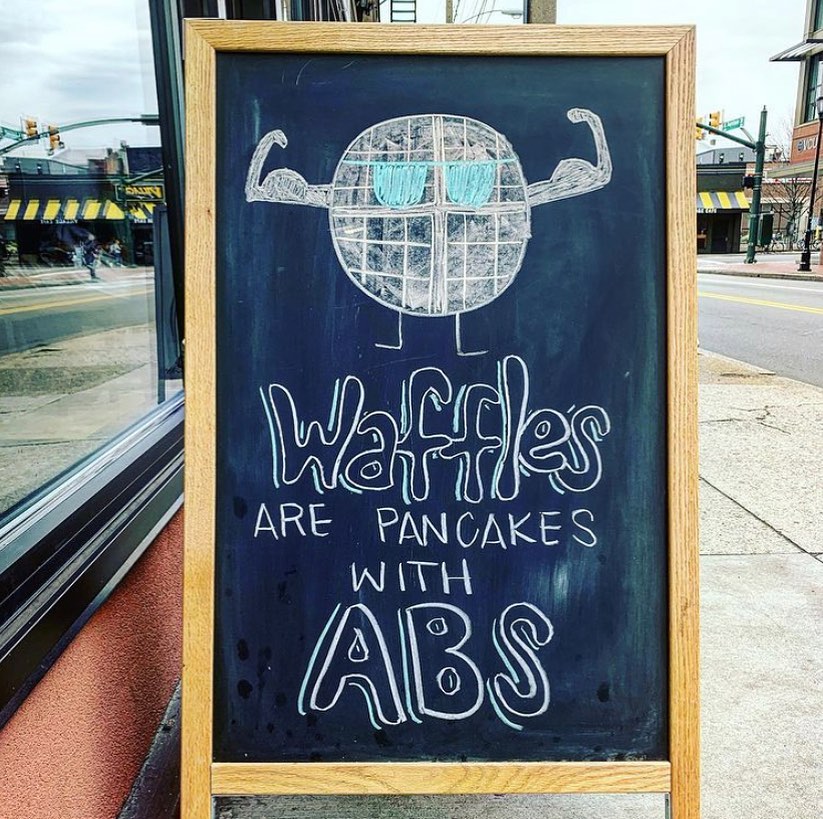 Waffles
ARE PANCAKES
WITH
ABS